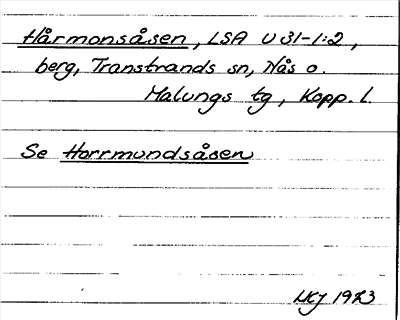 Hårmonsåsen, LSA U 31-1:2,
berg, Transtrands sn, Nås o.
Malungs tg, Kopp. l.
Se Horrmundsåsen
1973